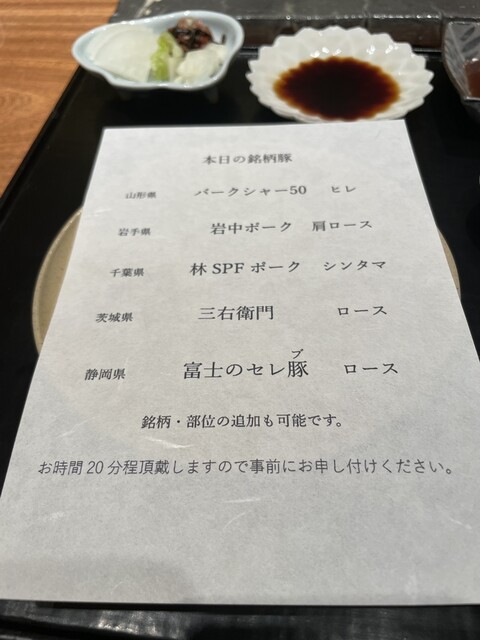 本日の銘柄豚
山形県 バークシャー50 ヒレ
岩手県 岩中ポーク 肩ロース
千葉県 林SPFポーク シンタマ
茨城県 三右衛門 ロース
ブ
静岡県 富士のセレ豚 ロース
銘柄・部位の追加も可能です。
お時間20分程頂戴しますので事前にお申し付けください。